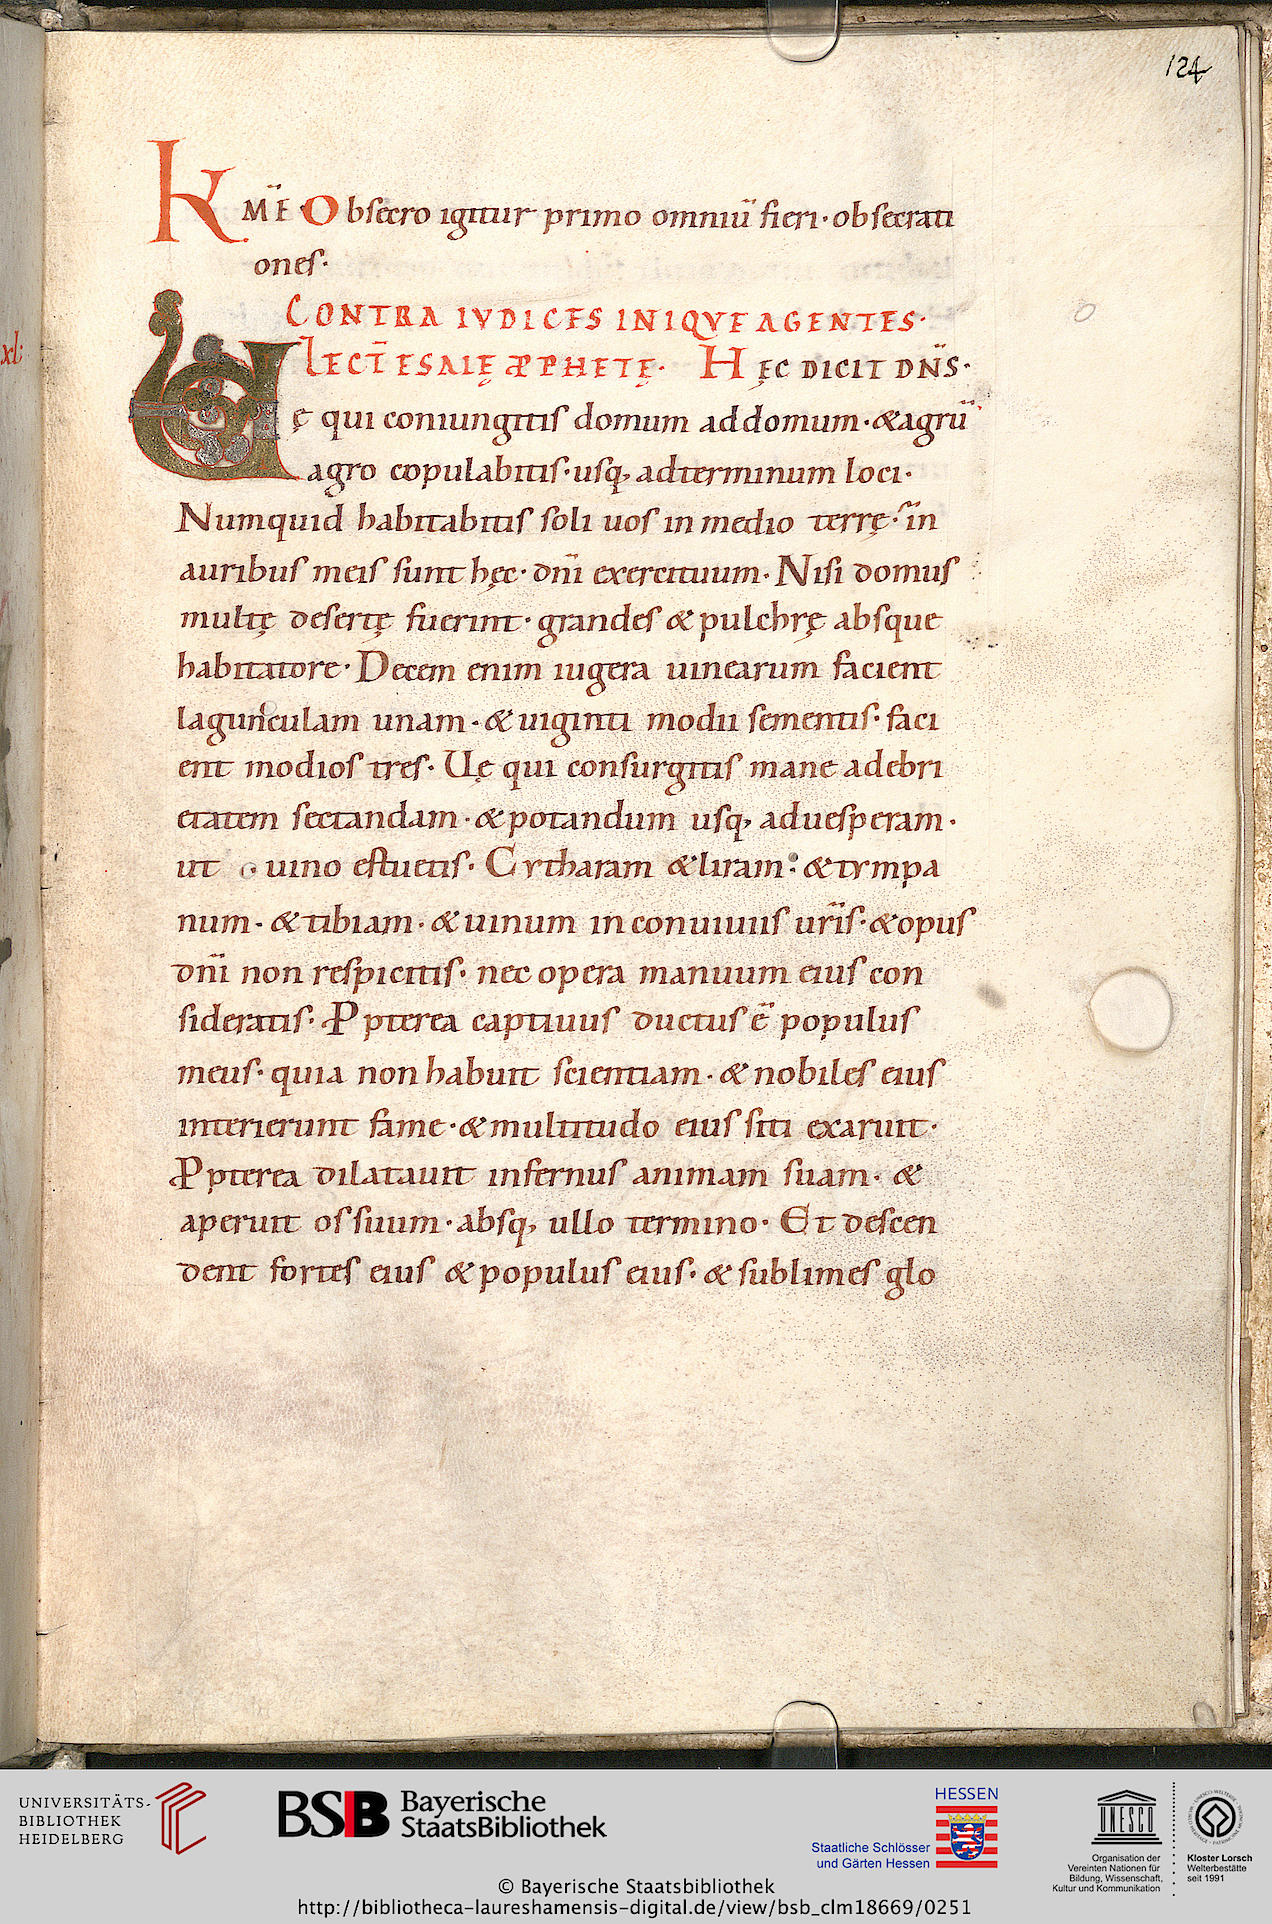 124
KMĒ· Obsecro igitur primo omniū fieri· obsecrati
ones·
CONTRA IVDICES INIQVE AGENTES·
xl·
LECT̄ ESAIĘ ꝓPHETĘ· HĘC DICIT DN̄S·
Vę qui coniungitis domum ad domum· & agrū
agro copulabitis· usq; ad terminum loci·
Numquid habitabitis soli uos in medio terrę· in
auribus meis sunt hęc· dn̄i exercituum· Nisi domus
multę desertę fuerint· grandes & pulchrę absque
habitatore· Decem enim iugera uinearum facient
lagunculam unam· & uiginti modii sementis· faci
ent modios tres· Uę qui consurgitis mane ad ebri
etatem sectandam· & potandum usq; ad uesperam·
ut uino estuetis· Cytharam & liram· & tympa
num· & tibiam· & uinum in conuiuiis ur̄is· & opus
dn̄i non respicitis· nec opera manuum eius con
sideratis· Ꝓpterea captiuus ductus ē populus
meus· quia non habuit scientiam· & nobiles eius
interierunt fame· & multitudo eius siti exaruit·
Ꝓpterea dilatauit infernus animam suam· &
aperuit os suum· absq; ullo termino· Et descen
dent fortes eius & populus eius· & sublimes glo
UNIVERSITÄTS-
BIBLIOTHEK
HEIDELBERG
BSB Bayerische
StaatsBibliothek
HESSEN
Staatliche Schlösser
und Gärten Hessen
UNESCO
Organisation der
Vereinten Nationen für
Bildung, Wissenschaft,
Kultur und Kommunikation
Kloster Lorsch
Welterbestätte
seit 1991
© Bayerische Staatsbibliothek
http://bibliotheca-laureshamensis-digital.de/view/bsb_clm18669/0251